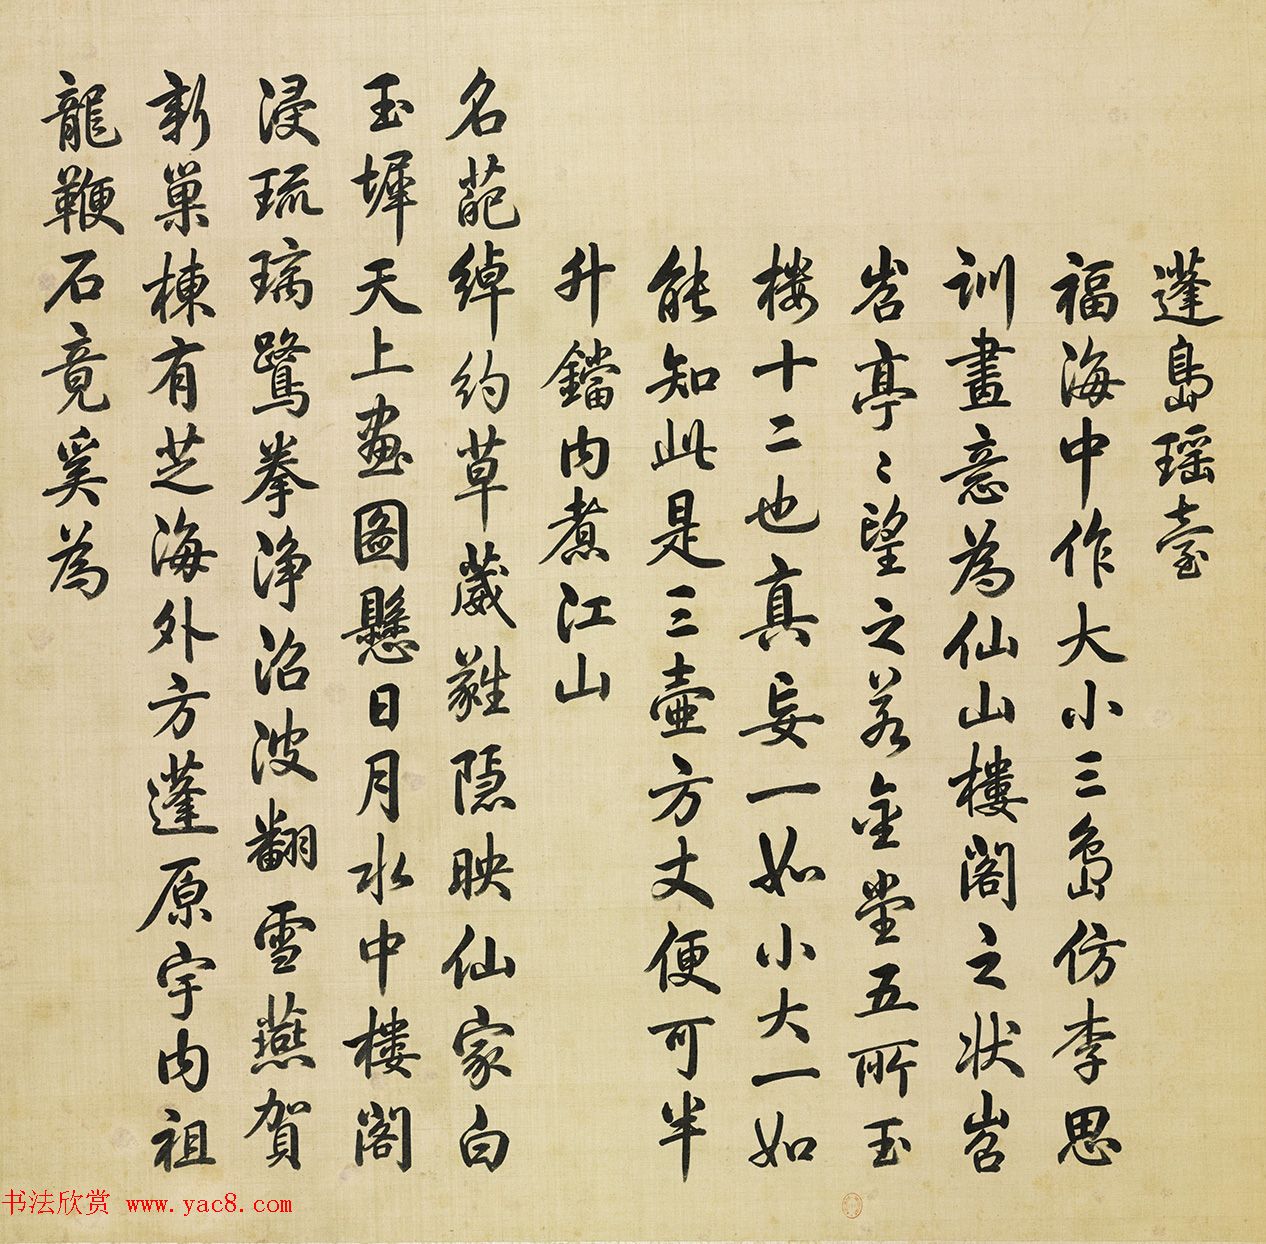 蓬島瑶臺
福海中作大小三島仿李思
訓畫意為仙山樓閣之状岧
岧亭〻望之若金堂五所玉
楼十二也真妄一如小大一如
能知此是三壺方丈便可半
升鐺内煮江山
名葩綽約草葳蕤隱映仙家白
玉墀天上画圖懸日月水中樓閣
浸琉璃鷺拳淨沼波翻雪燕賀
新巢棟有芝海外方蓬原宇内祖
龍鞭石竟奚為
书法欣赏 www.yac8.com